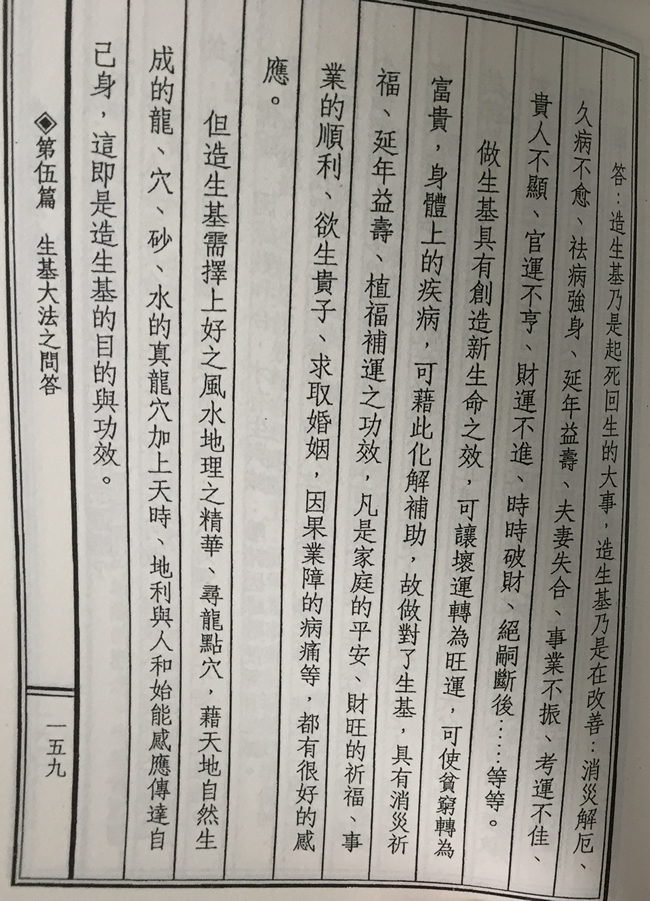 答：造生基乃是起死回生的大事，造生基乃是在改善：消災解厄、
久病不愈、祛病強身、延年益壽、夫妻失合、事業不振、考運不佳、
貴人不顯、官運不亨、財運不進、時時破財、絕嗣斷後……等等。
做生基具有創造新生命之效，可讓壞運轉為旺運，可使貧窮轉為
富貴，身體上的疾病，可藉此化解補助，故做對了生基，具有消災祈
福、延年益壽、植福補運之功效，凡是家庭的平安、財旺的祈福、事
業的順利、欲生貴子、求取婚姻，因果業障的病痛等，都有很好的感
應。
但造生基需擇上好之風水地理之精華、尋龍點穴，藉天地自然生
成的龍、穴、砂、水的真龍穴加上天時、地利與人和始能感應傳達自
己身，這即是造生基的目的與功效。
◈第伍篇 生基大法之問答
一五九